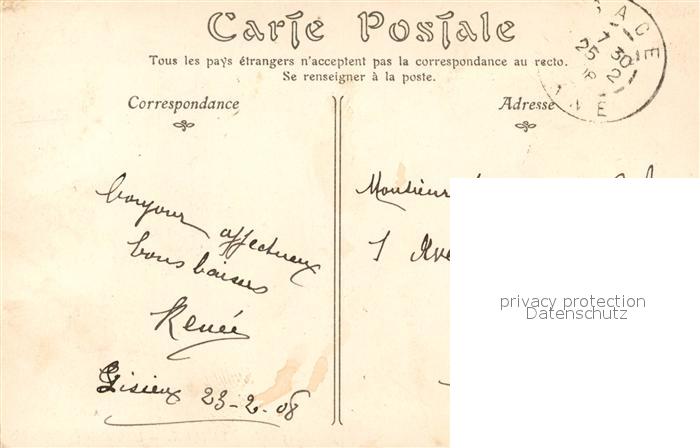 Carte Postale
Tous les pays étrangers n'acceptent pas la correspondance au recto.
Se renseigner à la poste.
Correspondance
Adresse
bonjour affectueux
bons baisers
Renée
Lisieux 23-2-08
Monsieur
1 Ave
ACE
7 30
25 2
08
NE
privacy protection
Datenschutz